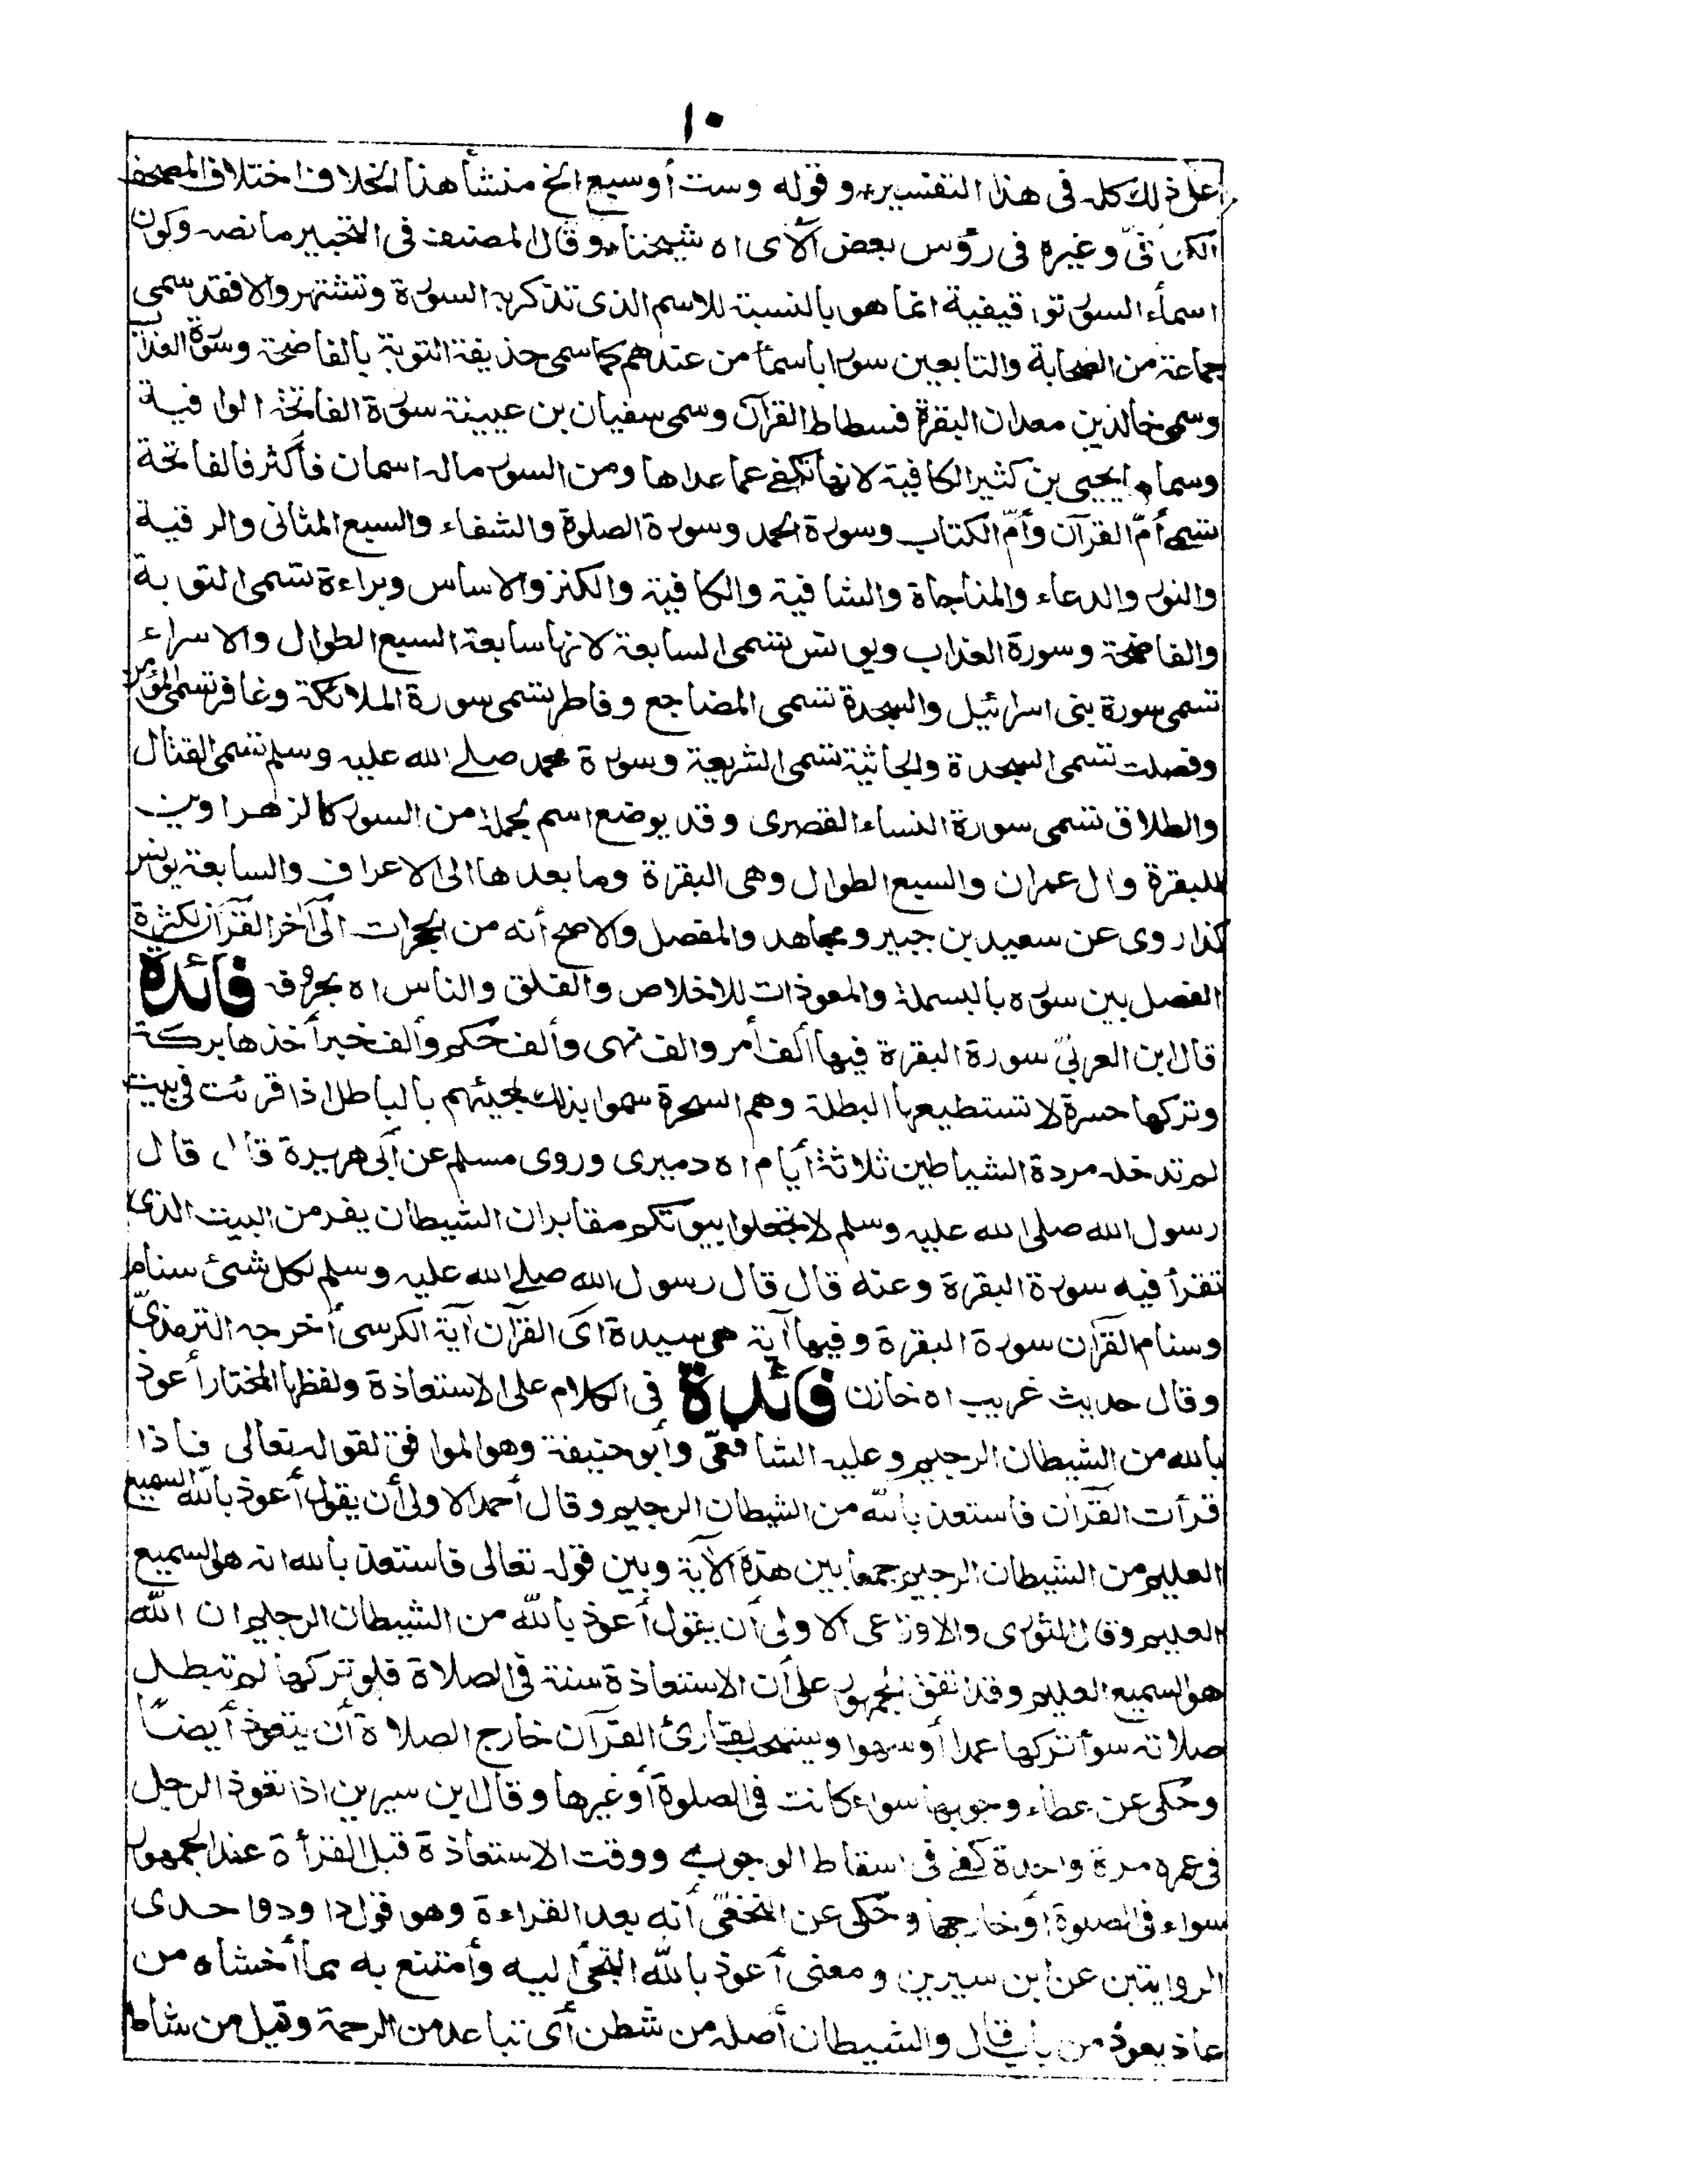 ١٠
على ذلك كله فى هذا التفسير، وقوله وست أوسبع الخ منشأ هذا الخلاف اختلاف المصحف
الكوفىّ وغيره فى رؤس بعض الآى اه شيخنا، وقال المصنف فى التحبير ما نصه وكون
اسماء السور توقيفية انما هو بالنسبة للاسم الذى تذكر به السورة وتشتهر والا فقد سمى
جماعة من الصحابة والتابعين سورا باسمأ من عندهم كما سمى حذيفة التوبة بالفاضحة وسورة العذاب
وسمى خالد بن معدان البقرة فسطاط القرآن وسمى سفيان بن عيينة سورة الفاتحة الوافية
وسماها يحيى بن كثير الكافية لانها تكفى عما عداها ومن السور ماله اسمان فأكثر فالفاتحة
تسمى أمّ القرآن وأمّ الكتاب وسورة الحمد وسورة الصلوة والشفاء والسبع المثانى والرقية
والنور والدعاء والمناجاة والشافية والكافية والكنز والاساس وبراءة تسمى التوبة
والفاضحة وسورة العذاب ويونس تسمى السابعة لانها سابعة السبع الطوال والاسراء
تسمى سورة بنى اسرائيل والسجدة تسمى المضاجع وفاطر تسمى سورة الملائكة وغافر تسمى المؤمن
وفصلت تسمى السجدة والجاثية تسمى الشريعة وسورة محمد صلے الله عليه وسلم تسمى القتال
والطلاق تسمى سورة النساء القصرى وقد يوضع اسم لجملة من السور كالزهراوين
للبقرة وال عمران والسبع الطوال وهى البقرة وما بعدها الى الاعراف والسابعة يونس
كذا روى عن سعيد بن جبير ومجاهد والمفصل والاصح أنه من الحجرات الى آخر القرآن لكثرة
الفصل بين سوره بالبسملة والمعوذات للاخلاص والفلق والناس اه بحروفه فائدة
قال ابن العربىّ سورة البقرة فيها ألف أمر والف نهى وألف حكم وألف خبر أخذها بركة
وتركها حسرة لا تستطيعها البطلة وهم السحرة سموا بذلك لمجيئهم بالباطل اذا قرئت فى بيت
لم تدخله مردة الشياطين ثلاثة أيام اه دميرى وروى مسلم عن أبى هريرة قال قال
رسول الله صلى الله عليه وسلم لا تجعلوا بيوتكم مقابر ان الشيطان يفر من البيت الذى
تقرأ فيه سورة البقرة وعنه قال قال رسول الله صلے الله عليه وسلم لكل شئ سنام
وسنام القرآن سورة البقرة وفيها آية هى سيدة آى القرآن آية الكرسى أخرجه الترمذىّ
وقال حديث غريب اه خازن فائدة فى الكلام على الاستعاذة ولفظها المختار أعوذ
بالله من الشيطان الرجيم وعليه الشافعىّ وأبو حنيفة وهو الموافق لقوله تعالى فاذا
قرأت القرآن فاستعذ بالله من الشيطان الرجيم وقال أحمد الاولى أن يقول أعوذ بالله السميع
العليم من الشيطان الرجيم جمعا بين هذه الآية وبين قوله تعالى فاستعذ بالله انه هو السميع
العليم وقال الثورى والاوزاعى الاولى أن يقول أعوذ بالله من الشيطان الرجيم ان الله
هو السميع العليم وقد اتفق الجمهور على أن الاستعاذة سنة فى الصلاة فلو تركها لم تبطل
صلاته سوأ تركها عمدا أو سهوا ويستحب لقارئ القرآن خارج الصلاة أن يتعوذ أيضًا
وحُكى عن عطاء وجوبها سواء كانت فى الصلوة أو غيرها وقال ابن سيرين اذا تعوذ الرجل
فى عمره مرة واحدة كفى فى اسقاط الوجوب ووقت الاستعاذة قبل القرأة عند الجمهور
سواء فى الصلوة أو خارجها وحُكى عن النخعىّ أنه بعد القراءة وهو قول داود واحدى
الروايتين عن ابن سيرين ومعنى أعوذ بالله التجئ اليه وأمتنع به مما أخشاه من
عاذ يعوذ من باب قال والشيطان أصله من شطن أى تباعد من الرحمة وقيل من شاط